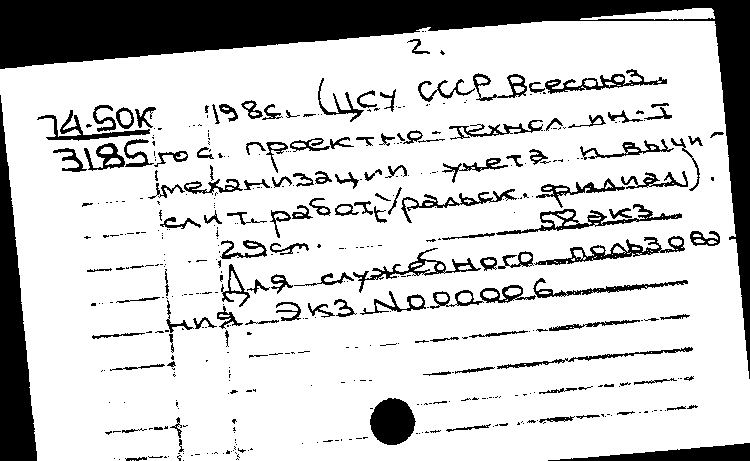 2.
74-50К 198с. (ЦСУ СССР. Всесоюз.
3185 гос. проектно-технол. ин-т
механизации учета и вычи-
слит. работ, Уральск. филиал).
29см. 58 экз.
Для служебного пользова-
ния. Экз. N000006